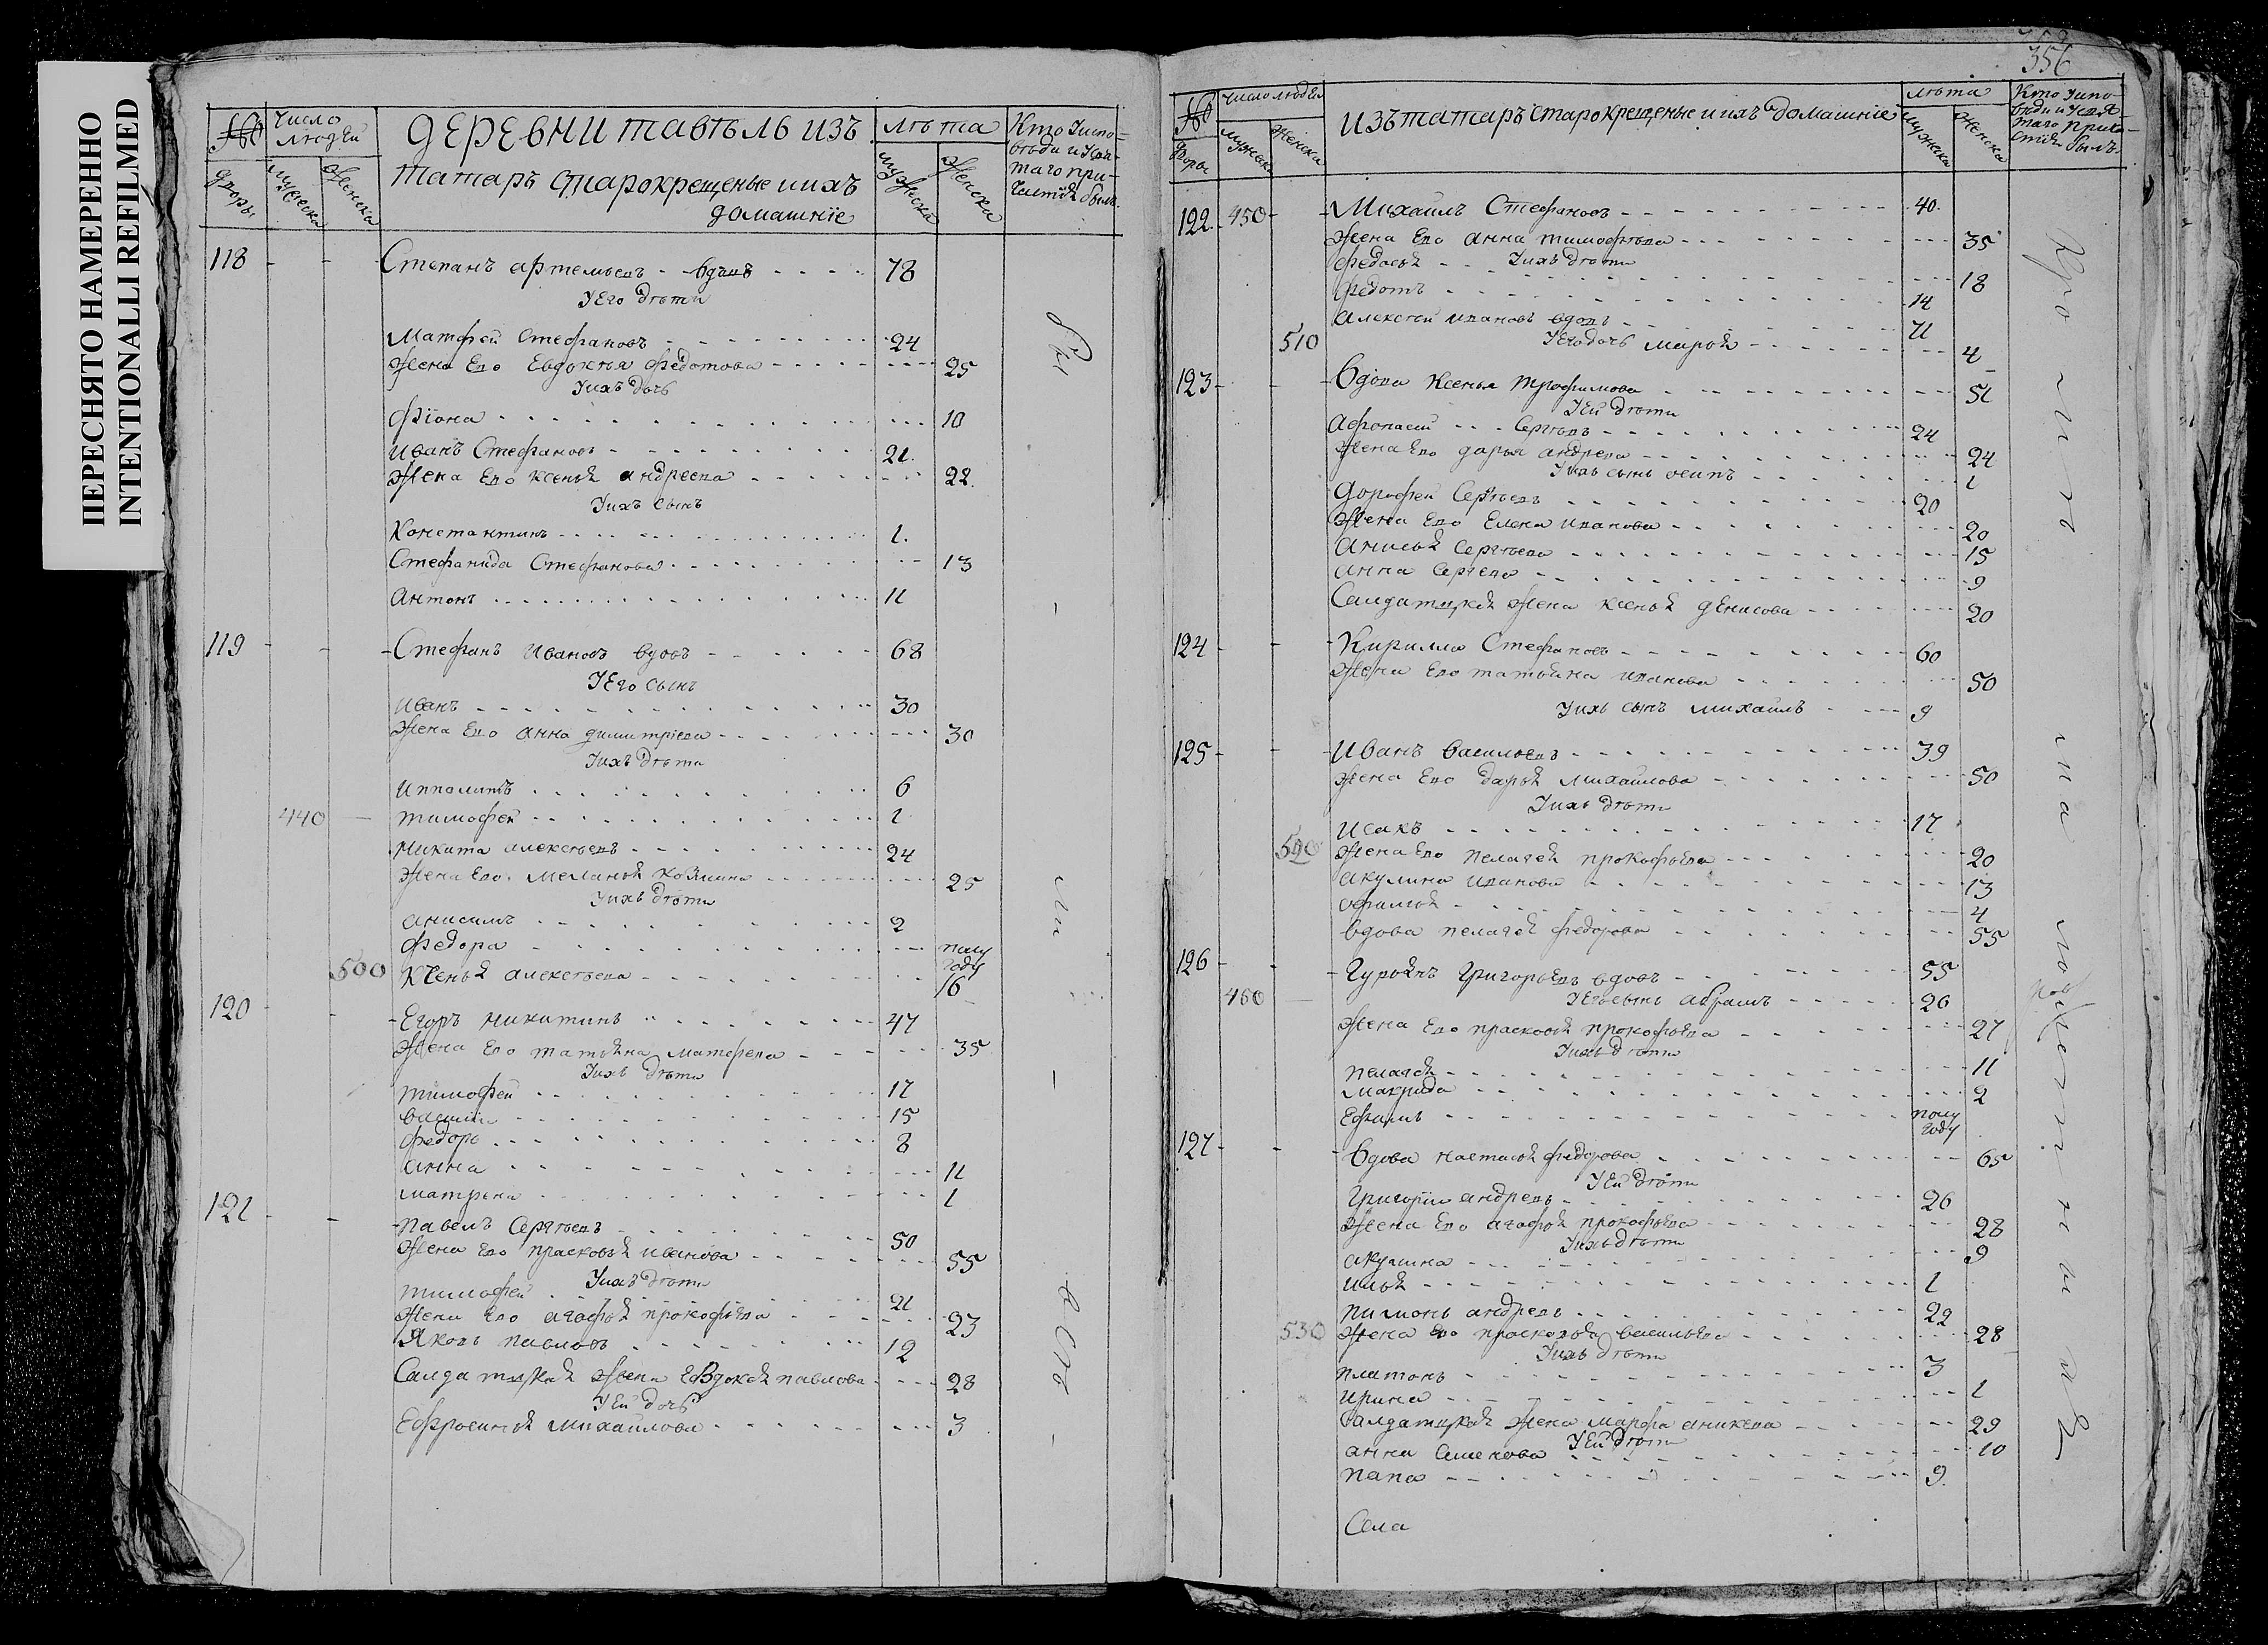 ПЕРЕСНЯТО НАМЕРЕННО
INTENTIONALLI REFILMED
№
Число людей
ДЕРЕВНИ ТАВТѢЛЬ ИЗЪ
лѣта
Кто у испо-
вѣди и
таго при-
дворы
мужеска
женска
татаръ старокрещеные и ихъ
домашніе
мужеска
женска
118 - - Степанъ Артемьевъ - вдовъ 78
У Его дѣти
Матфей Стефановъ 24
Жена Его Евдокѣя Федотова 25
У ихъ дочь
Фіона 10
Иванъ Стефановъ 21.
Жена Его Ксенья Андреева 22.
У ихъ сынъ
Константинъ 1.
Стефанида Стефанова 13
Антонъ 11
119 - - Стефанъ Ивановъ вдовъ 68
У Его сынъ
Иванъ 30
Жена Его Анна Димитріева 30
У ихъ дѣти
Ипполитъ 6
440 Тимофей 1
Никита Алексѣевъ 24
Жена Его Меланья Козмина 25
У ихъ дѣти
Анисимъ 2
Федора полу году
500 Ксенья Алексѣева 16
120 - - Егоръ Никитинъ 47
Жена Его Татьяна Матфева 35
У ихъ дѣти
Тимофей 17
Василій 15
Федоръ 8
Анна 11
Матрена 1
121 - - Павелъ Сергѣевъ 50
Жена Его Прасковья Иванова 55
У ихъ дѣти
Тимофей 21
Жена Его Агафья Прокофьева 23
Яковъ Павловъ 12
Салдатская Жена Евдокѣя Павлова 28
У Ей дочь
Ефросинья Михайлова 3
356
№
Число людей
Изъ татаръ старокрещеные и ихъ домашніе
лѣта
Кто у испо-
вѣди и
таго прича-
стія былъ
дворы
мужеска
женска
мужеска
женска
122. 450 - Михаилъ Стефановъ 40.
Жена Его Анна Тимофѣева 35
У ихъ дѣти
Федосья 18
Федотъ 14
Алексѣй Ивановъ вдовъ 71
510 У Его дочь Марья 4
123 - - Вдова Ксенья Трофимова 51
У Ей дѣти
Афонасей Сергѣевъ 24
Жена Его Дарья Андрева 24
У ихъ сынъ Осипъ 1
Дорофей Сергѣевъ 20
Жена Его Елена Иванова 20
Анисья Сергѣева 15
Анна Сергева 9
Салдатская Жена Ксенья Денисова 20
124 - - Кирилла Стефановъ 60
Жена Его Татьяна Иванова 50
У ихъ сынъ Михаилъ 9
125 - - Иванъ Васильевъ 39
Жена Его Дарья Михайлова 50
У ихъ дѣти
Исакъ 17
520 Жена Его Пелагея Прокофьева 20
Акулина Иванова 13
Офимья 4
Вдова Пелагея Федорова 55
126 - - Гурьянъ Григорьевъ вдовъ 55
460 У Его сынъ Абрамъ 26
Жена Его Прасковья Прокофьева 27
У ихъ дѣти
Пелагея 11
Макрида 2
Ефимъ полу году
127 - - Вдова Настасья Федорова 65
У Ей дѣти
Григорій Андревъ 26
Жена Его Агафья Прокофьева 28
У ихъ дѣти
Акулина 9
Илья 1
Пимонъ Андревъ 22
530 Жена Его Прасковья Васильева 28
У ихъ дѣти
Платонъ 3
Ирина 1
Салдатская Жена Марфа Аникева 29
У Ей дѣти
Анна Семенова 10
9
Села